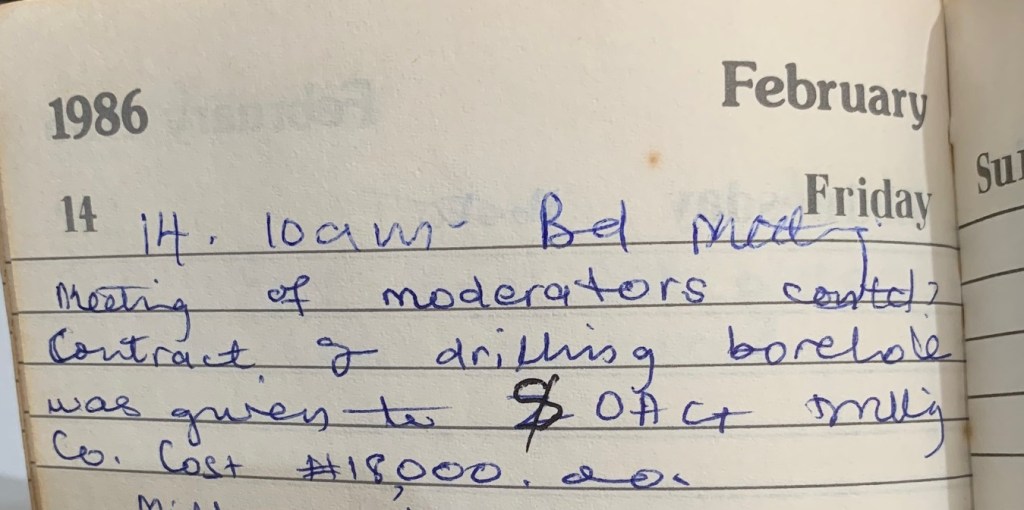 1986 February
14 Friday Su
14. 10am Bd
Meeting of moderators contd?
Contract of drilling borehole
was given to OA Ct
Co. Cost ₦18,000.